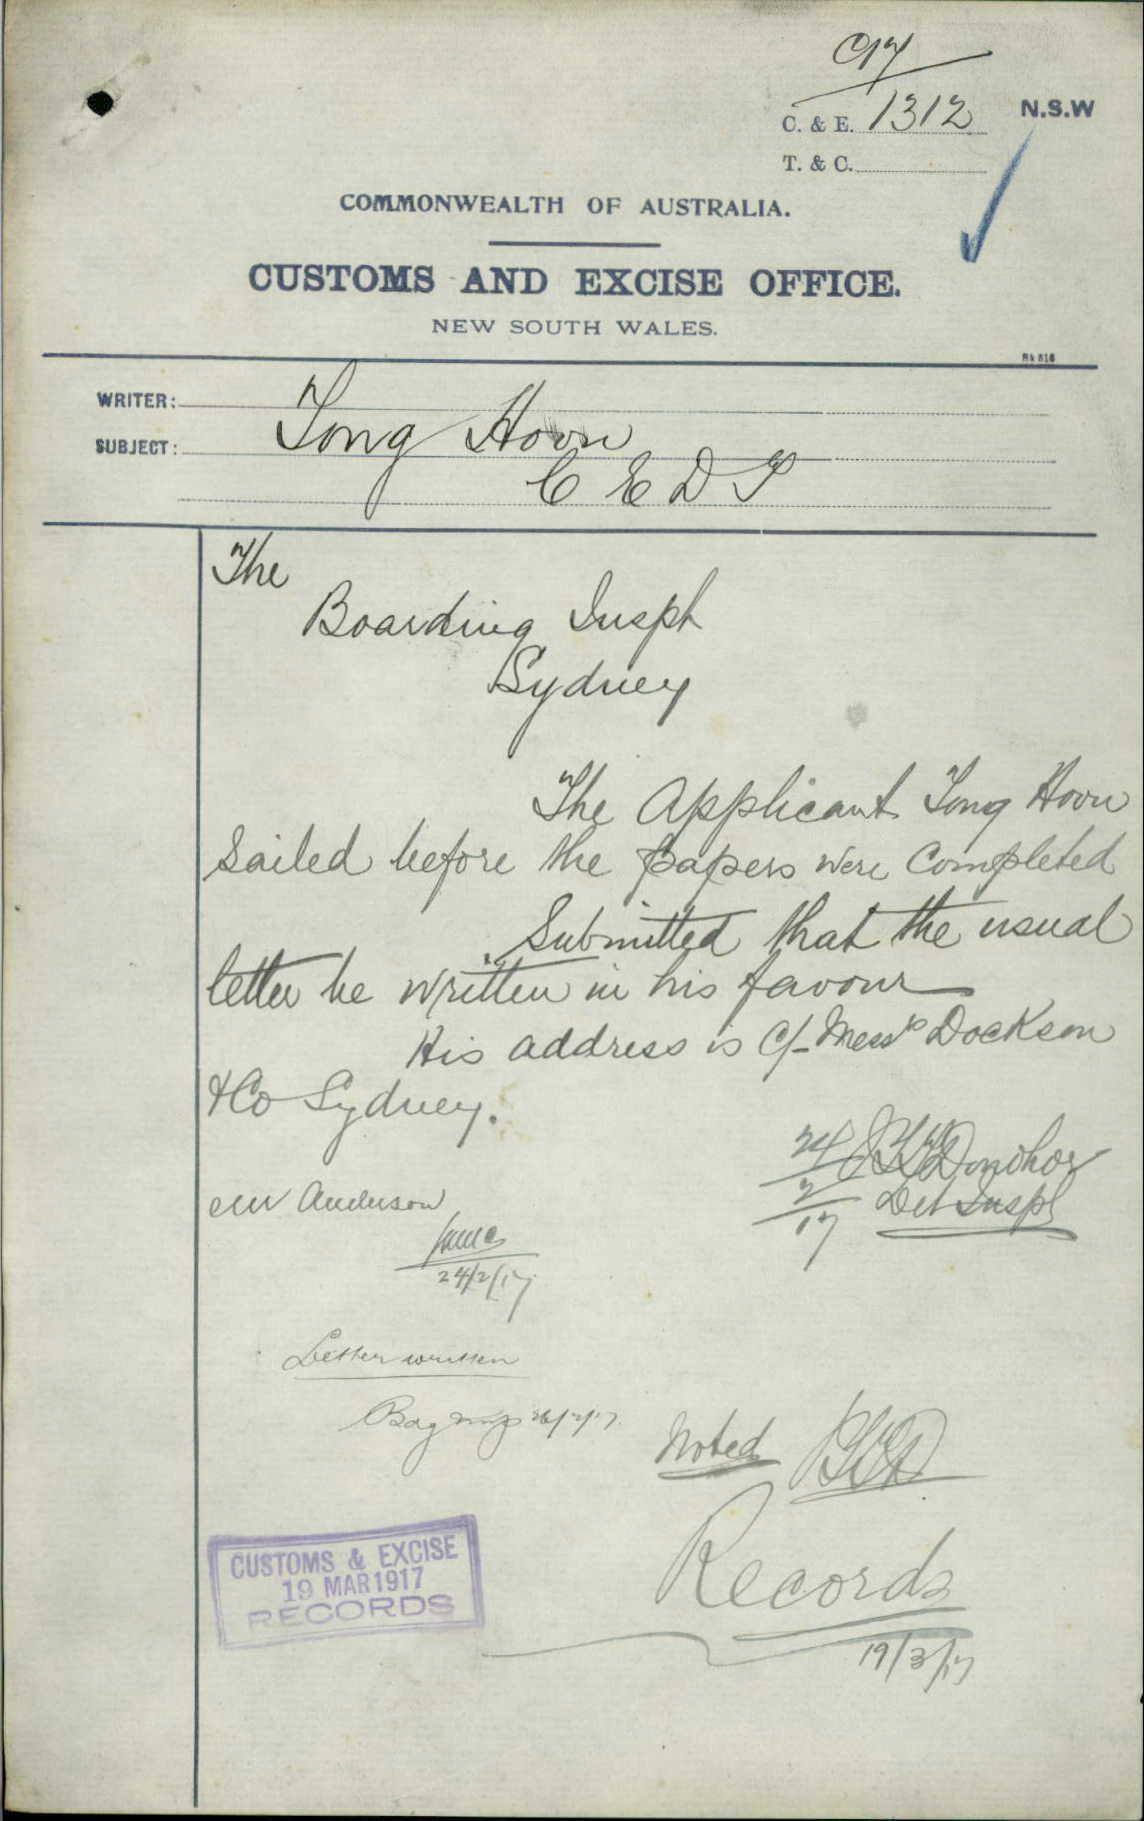 C17
C. & E. 1312 N.S.W
T. & C.
COMMONWEALTH OF AUSTRALIA.
CUSTOMS AND EXCISE OFFICE.
NEW SOUTH WALES.
WRITER:
SUBJECT: Tong Hoon
C E D T
The
Boarding Inspr
Sydney
The Applicant Tong Hoon
Sailed before the papers were completed
Submitted that the usual
letter be written in his favour
His address is C/- Messrs Dockson
& Co Sydney.
24/2/17 Donohoe
Det Inspr
Mr Anderson
24/2/17
Letter written
26/2/17
Noted
CUSTOMS & EXCISE
19 MAR 1917
RECORDS
Records
19/3/17